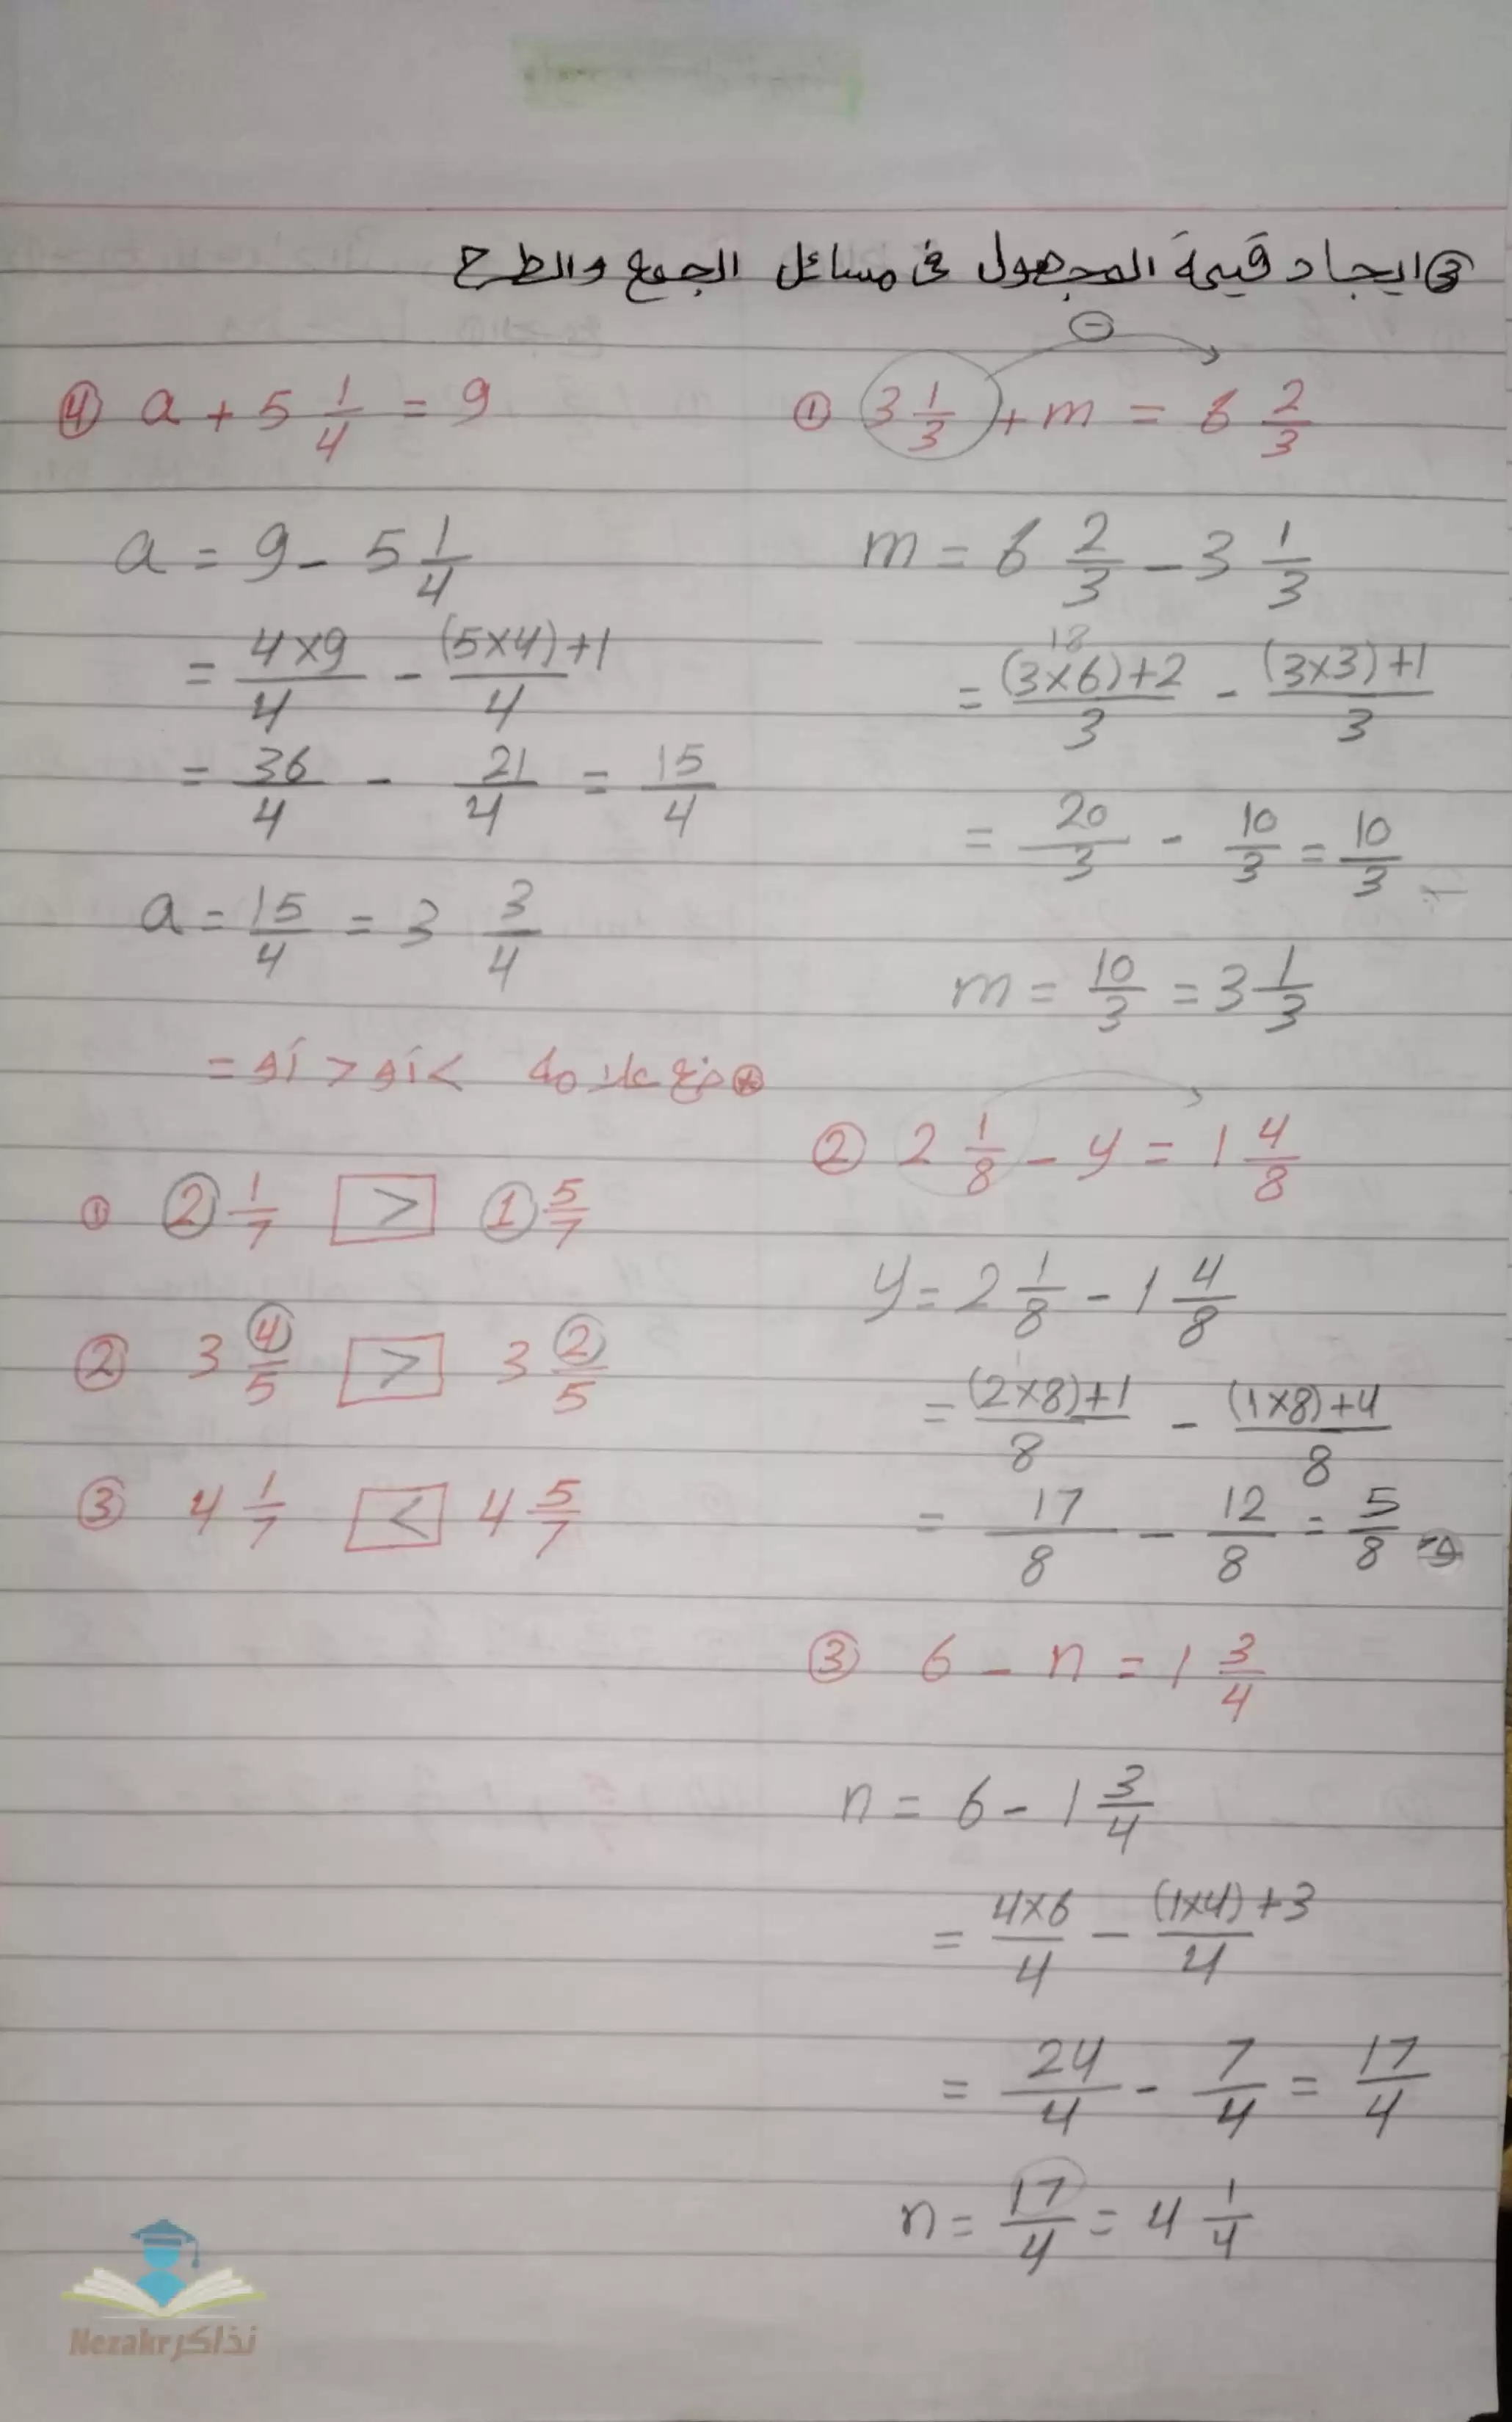 ③ ايجاد قيمة المجهول فى مسائل الجمع والطرح
① 3 1/3 + m = 6 2/3
⊖
m = 6 2/3 - 3 1/3
18
= (3×6)+2/3 - (3×3)+1/3
= 20/3 - 10/3 = 10/3
m = 10/3 = 3 1/3
② 2 1/8 - y = 1 4/8
y = 2 1/8 - 1 4/8
= (2×8)+1/8 - (1×8)+4/8
= 17/8 - 12/8 = 5/8
③ 6 - n = 1 3/4
n = 6 - 1 3/4
= 4×6/4 - (1×4)+3/4
= 24/4 - 7/4 = 17/4
n = 17/4 = 4 1/4
④ a + 5 1/4 = 9
a = 9 - 5 1/4
= 4×9/4 - (5×4)+1/4
= 36/4 - 21/4 = 15/4
a = 15/4 = 3 3/4
⊛ ضع علامة > أو < أو =
① 2 1/7 > 1 5/7
② 3 4/5 > 3 2/5
③ 4 1/7 < 4 5/7
Nezakr نذاكر